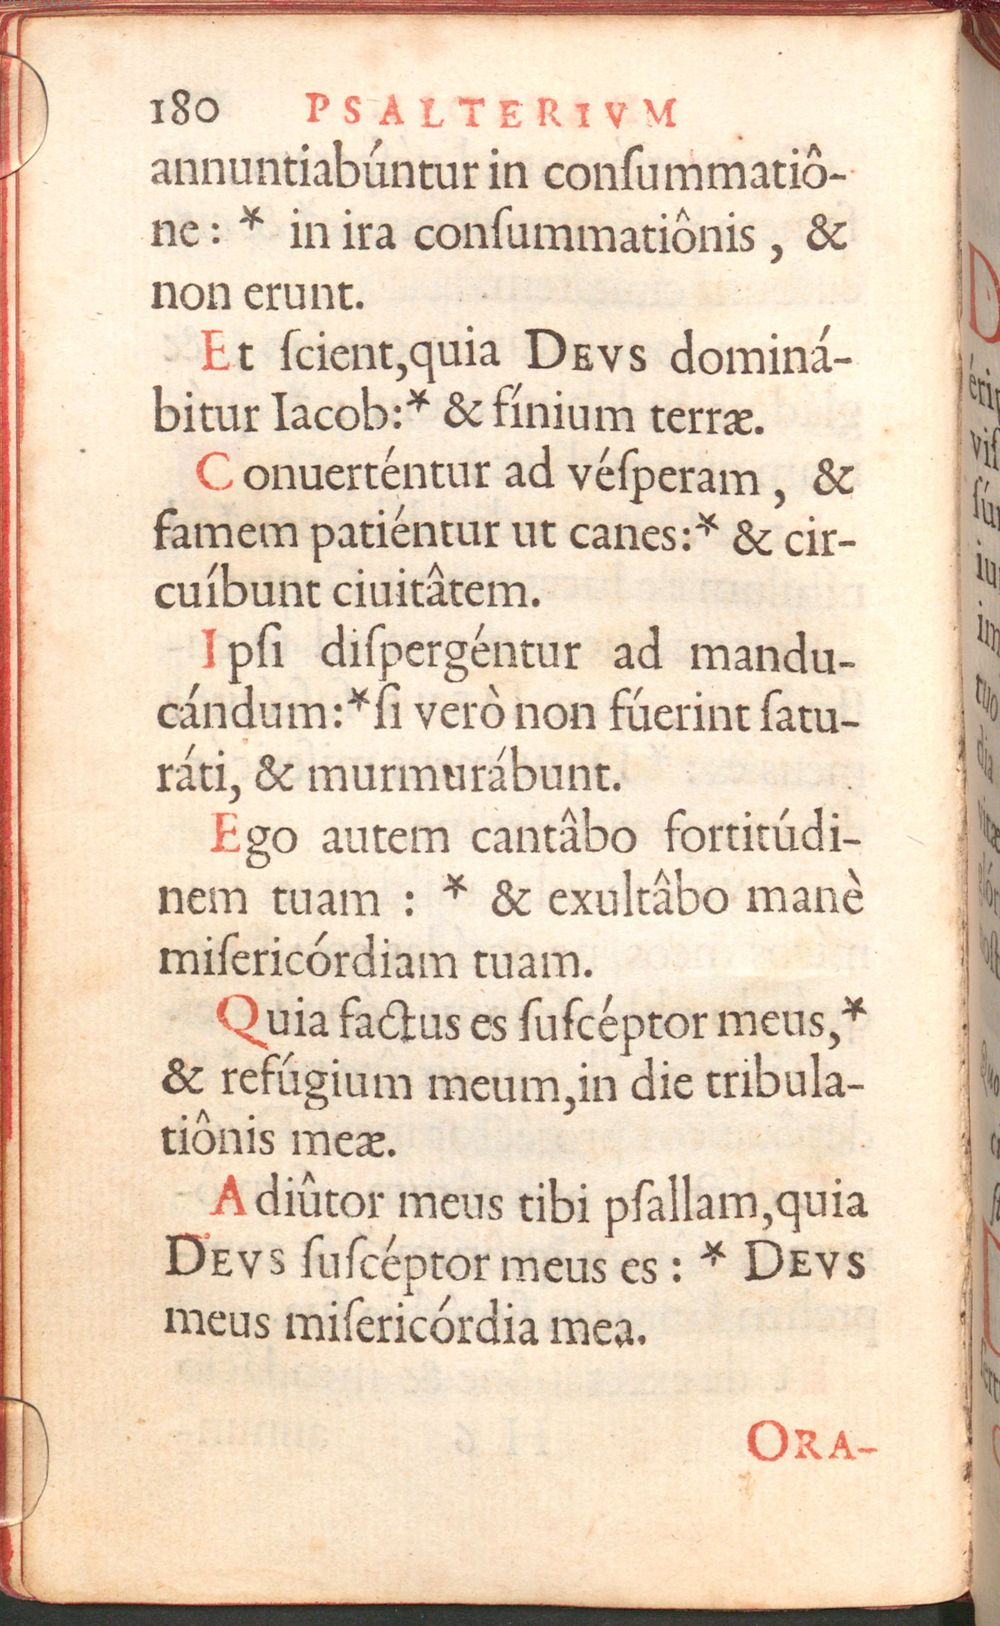 180 PSALTERIVM
annuntiabúntur in conſummatiô-
ne : * in ira conſummatiônis , &
non erunt.
Et ſcient,quia DEVS dominá-
bitur Iacob:* & fínium terræ.
Conuerténtur ad véſperam , &
famem patiéntur ut canes:* & cir-
cuíbunt ciuitâtem.
Ipſi diſpergéntur ad mandu-
cándum:*ſi verò non fúerint ſatu-
ráti, & murmurábunt.
Ego autem cantâbo fortitúdi-
nem tuam : * & exultâbo manè
miſericórdiam tuam.
Quia factus es ſuſcéptor meus,*
& refúgium meum,in die tribula-
tiônis meæ.
Adiûtor meus tibi pſallam,quia
DEVS ſuſcéptor meus es : * DEVS
meus miſericórdia mea.
ORA-